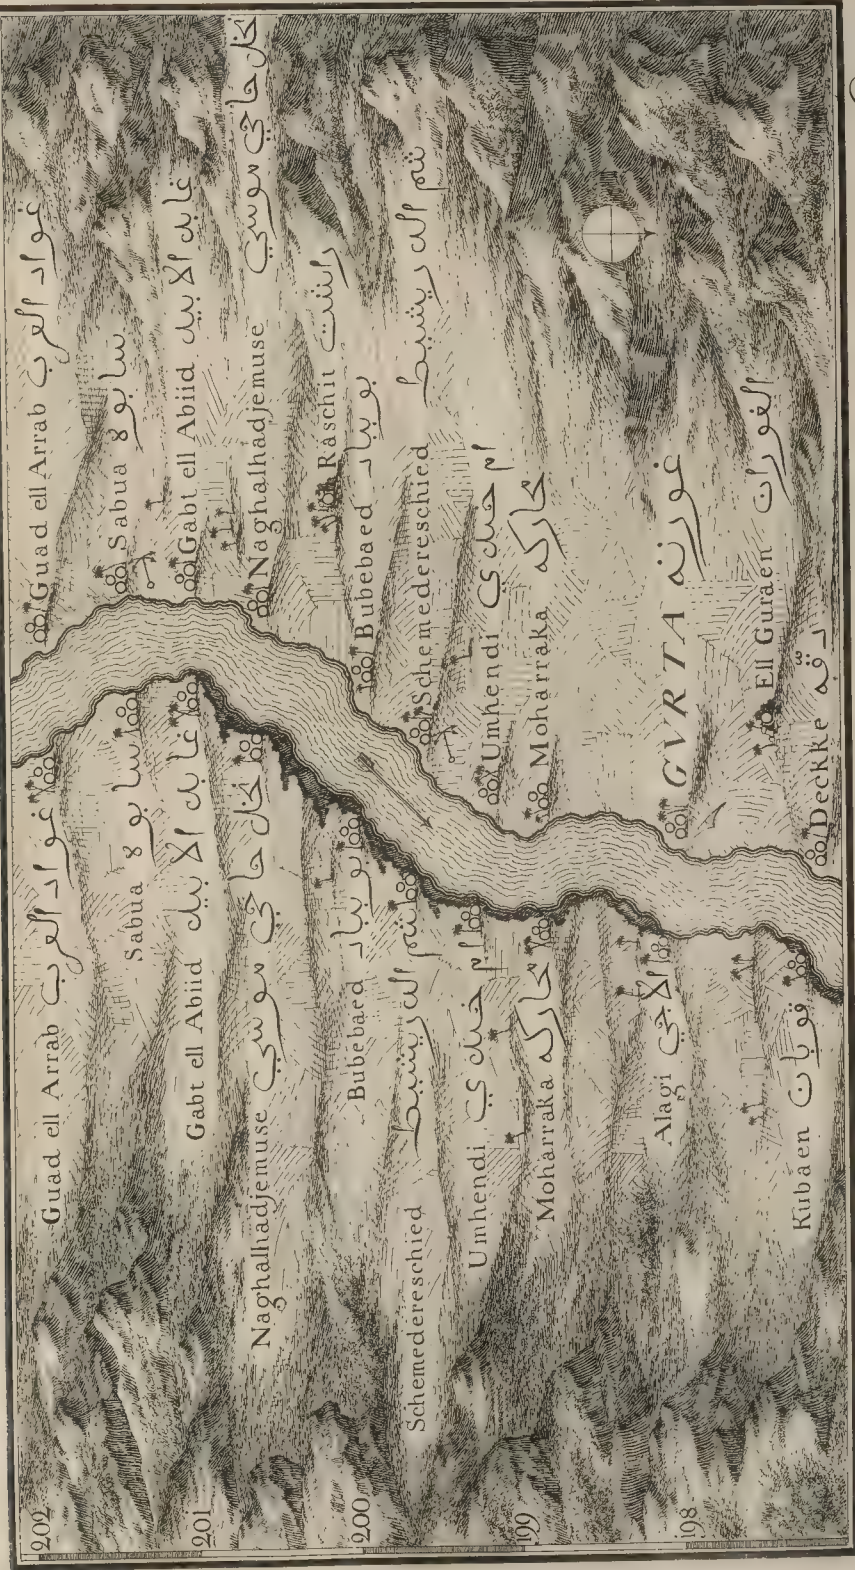 202
Guad ell Arrab غواد العرب
Guad ell Arrab غواد العرب
Sabua سابوه
Sabua سابوه
201
Gabt ell Abiid غابه الابيد
Gabt ell Abiid غابه الابيد
Naghalhadjemuse نخل حاجي موسي
Naghalhadjemuse نخل حاجي موسي
Raschit راشت
200
Bubebaed بو بباد
Bubebaed بو بباد
Schemedereschied شم اله ريشيط
Schemedereschied شم اله ريشيط
Umhendi ام هندي
Umhendi ام هندي
199
Moharraka محاركه
Moharraka محاركه
198
Alagi الاجي
GVRTA غورته
Ell Guraen الغوران
Kubaen قوبان
Deckke دقه